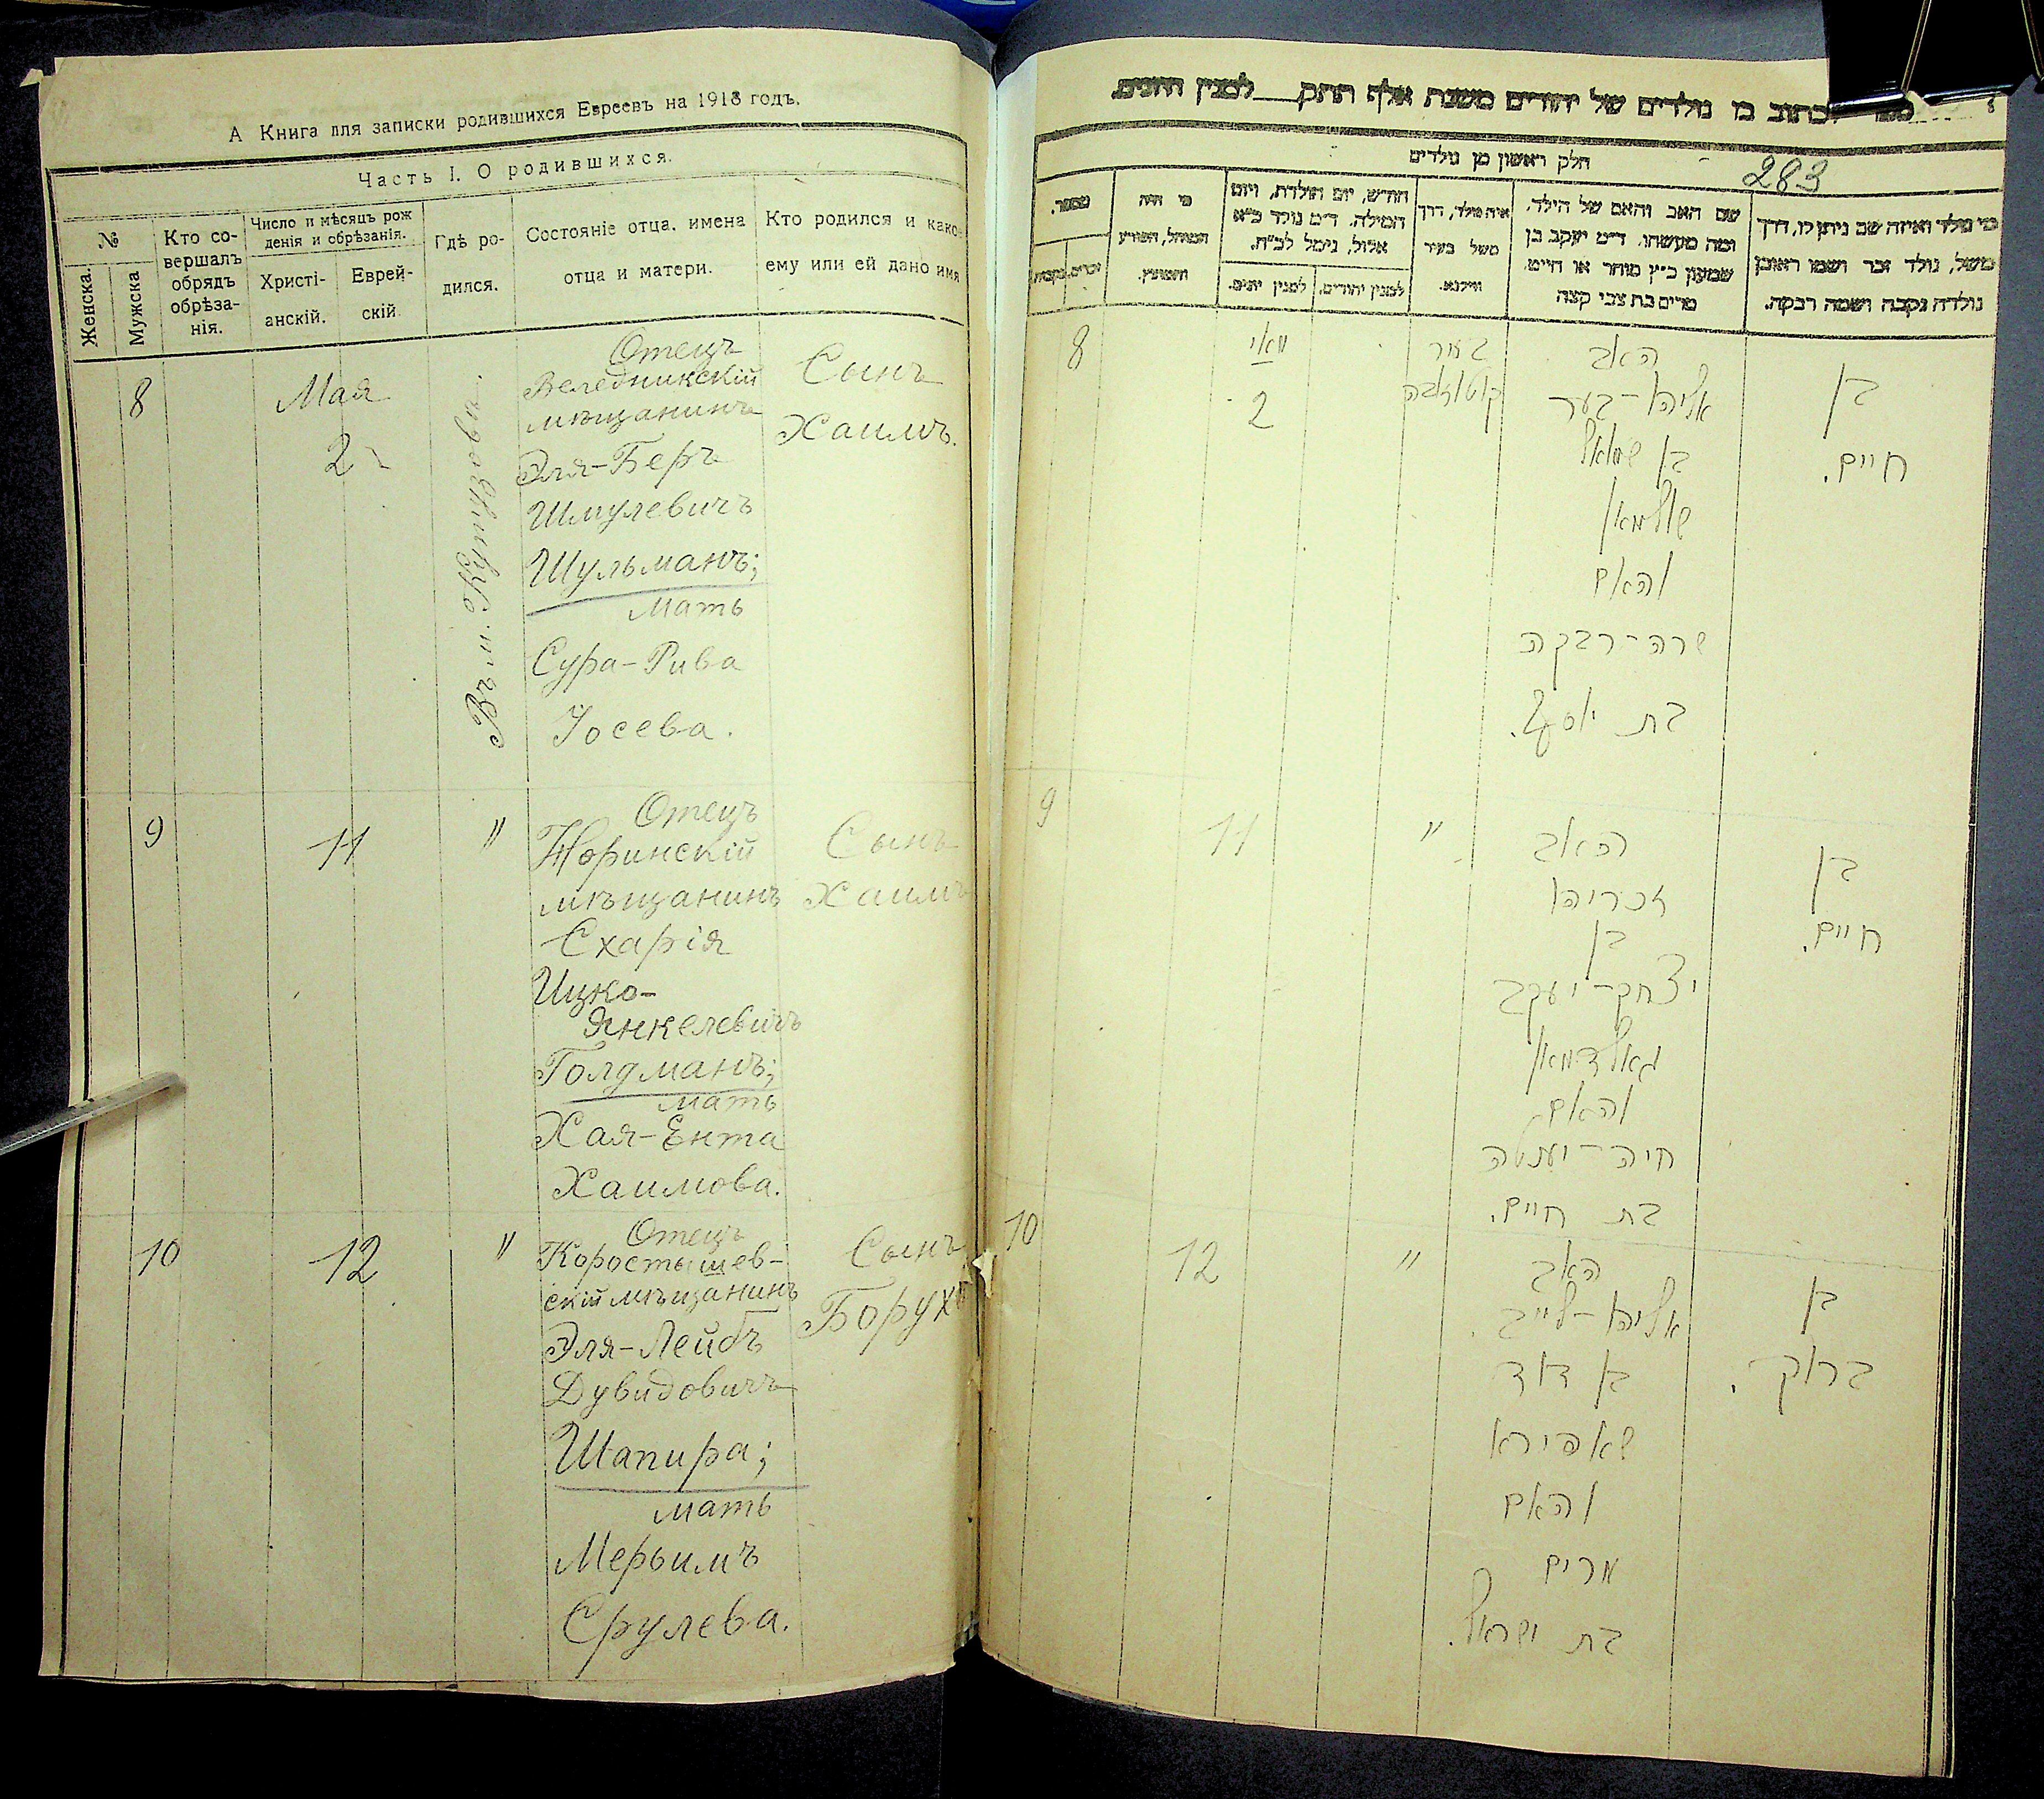 А Книга для записки родившихся Евреевъ на 1918 годъ.
Часть I. О родившихся.
№
Женска.
Мужска
Кто со-
вершалъ
обрядъ
обрѣза-
нія.
Число и мѣсяцъ рож
денія и обрѣзанія.
Христі-
анскій.
Еврей-
скій
Гдѣ ро-
дился.
Состояніе отца, имена
отца и матери.
Кто родился и како-
ему или ей дано имя
8
Мая
2
Отецъ
Веледникскій
мѣщанинъ
Эля-Беръ
Шмулевичъ
Шульманъ;
мать
Сура-Рива
Іосева.
Сынъ
Хаимъ.
9
11
"
Отецъ
Норинскій
мѣщанинъ
Схарія
Ицко-
Янкелевичъ
Голдманъ;
мать
Хая-Ента
Хаимова.
Сынъ
Хаимъ
10
12
"
Отецъ
Коростышев-
скій мѣщанинъ
Эля-Лейбъ
Дувидовичъ
Шапира;
мать
Мерьимъ
Срулева.
Сынъ
Борухъ
לכתוב בו נולדים של יהודים משנת אלף תתק__למנין היונים.
חלק ראשון מן נולדים
283
מספר.
זכרים.
נקבות.
מי היה
המוהל, הפורע
והמוצץ.
חודש, יום הולדת, ויום
המילה. ד״מ נולד כ״א
אלול, נימל לכ״ח.
למנין יונים.
למנין יהודים.
איה נולד, דרך
משל בעיר
ווילנא.
שם האב והאם של הילד,
ומה מעשהו. ד״מ יעקב בן
שמעון כ״ץ סוחר או חייט.
מרים בת צבי קצה
מי נולד ואיזה שם ניתן לו, דרך
משל, נולד זכר ושמו ראובן
נולדה נקבה ושמה רבקה.
8
מאי
2
בעיר
האב
אליהו-בער
בן שמואל
שולמאן
והאם
שרה-רבקה
בת יוסף.
בן
חיים.
9
11
"
האב
זכריהו
בן
יצחק-יעקב
גאלדמאן
והאם
חיה-יענטה
בת חיים.
בן
חיים.
10
12
"
האב
אליהו-לייב
בן דוד
שאפירא
והאם
מרים
בת ישראל.
בן
ברוך.